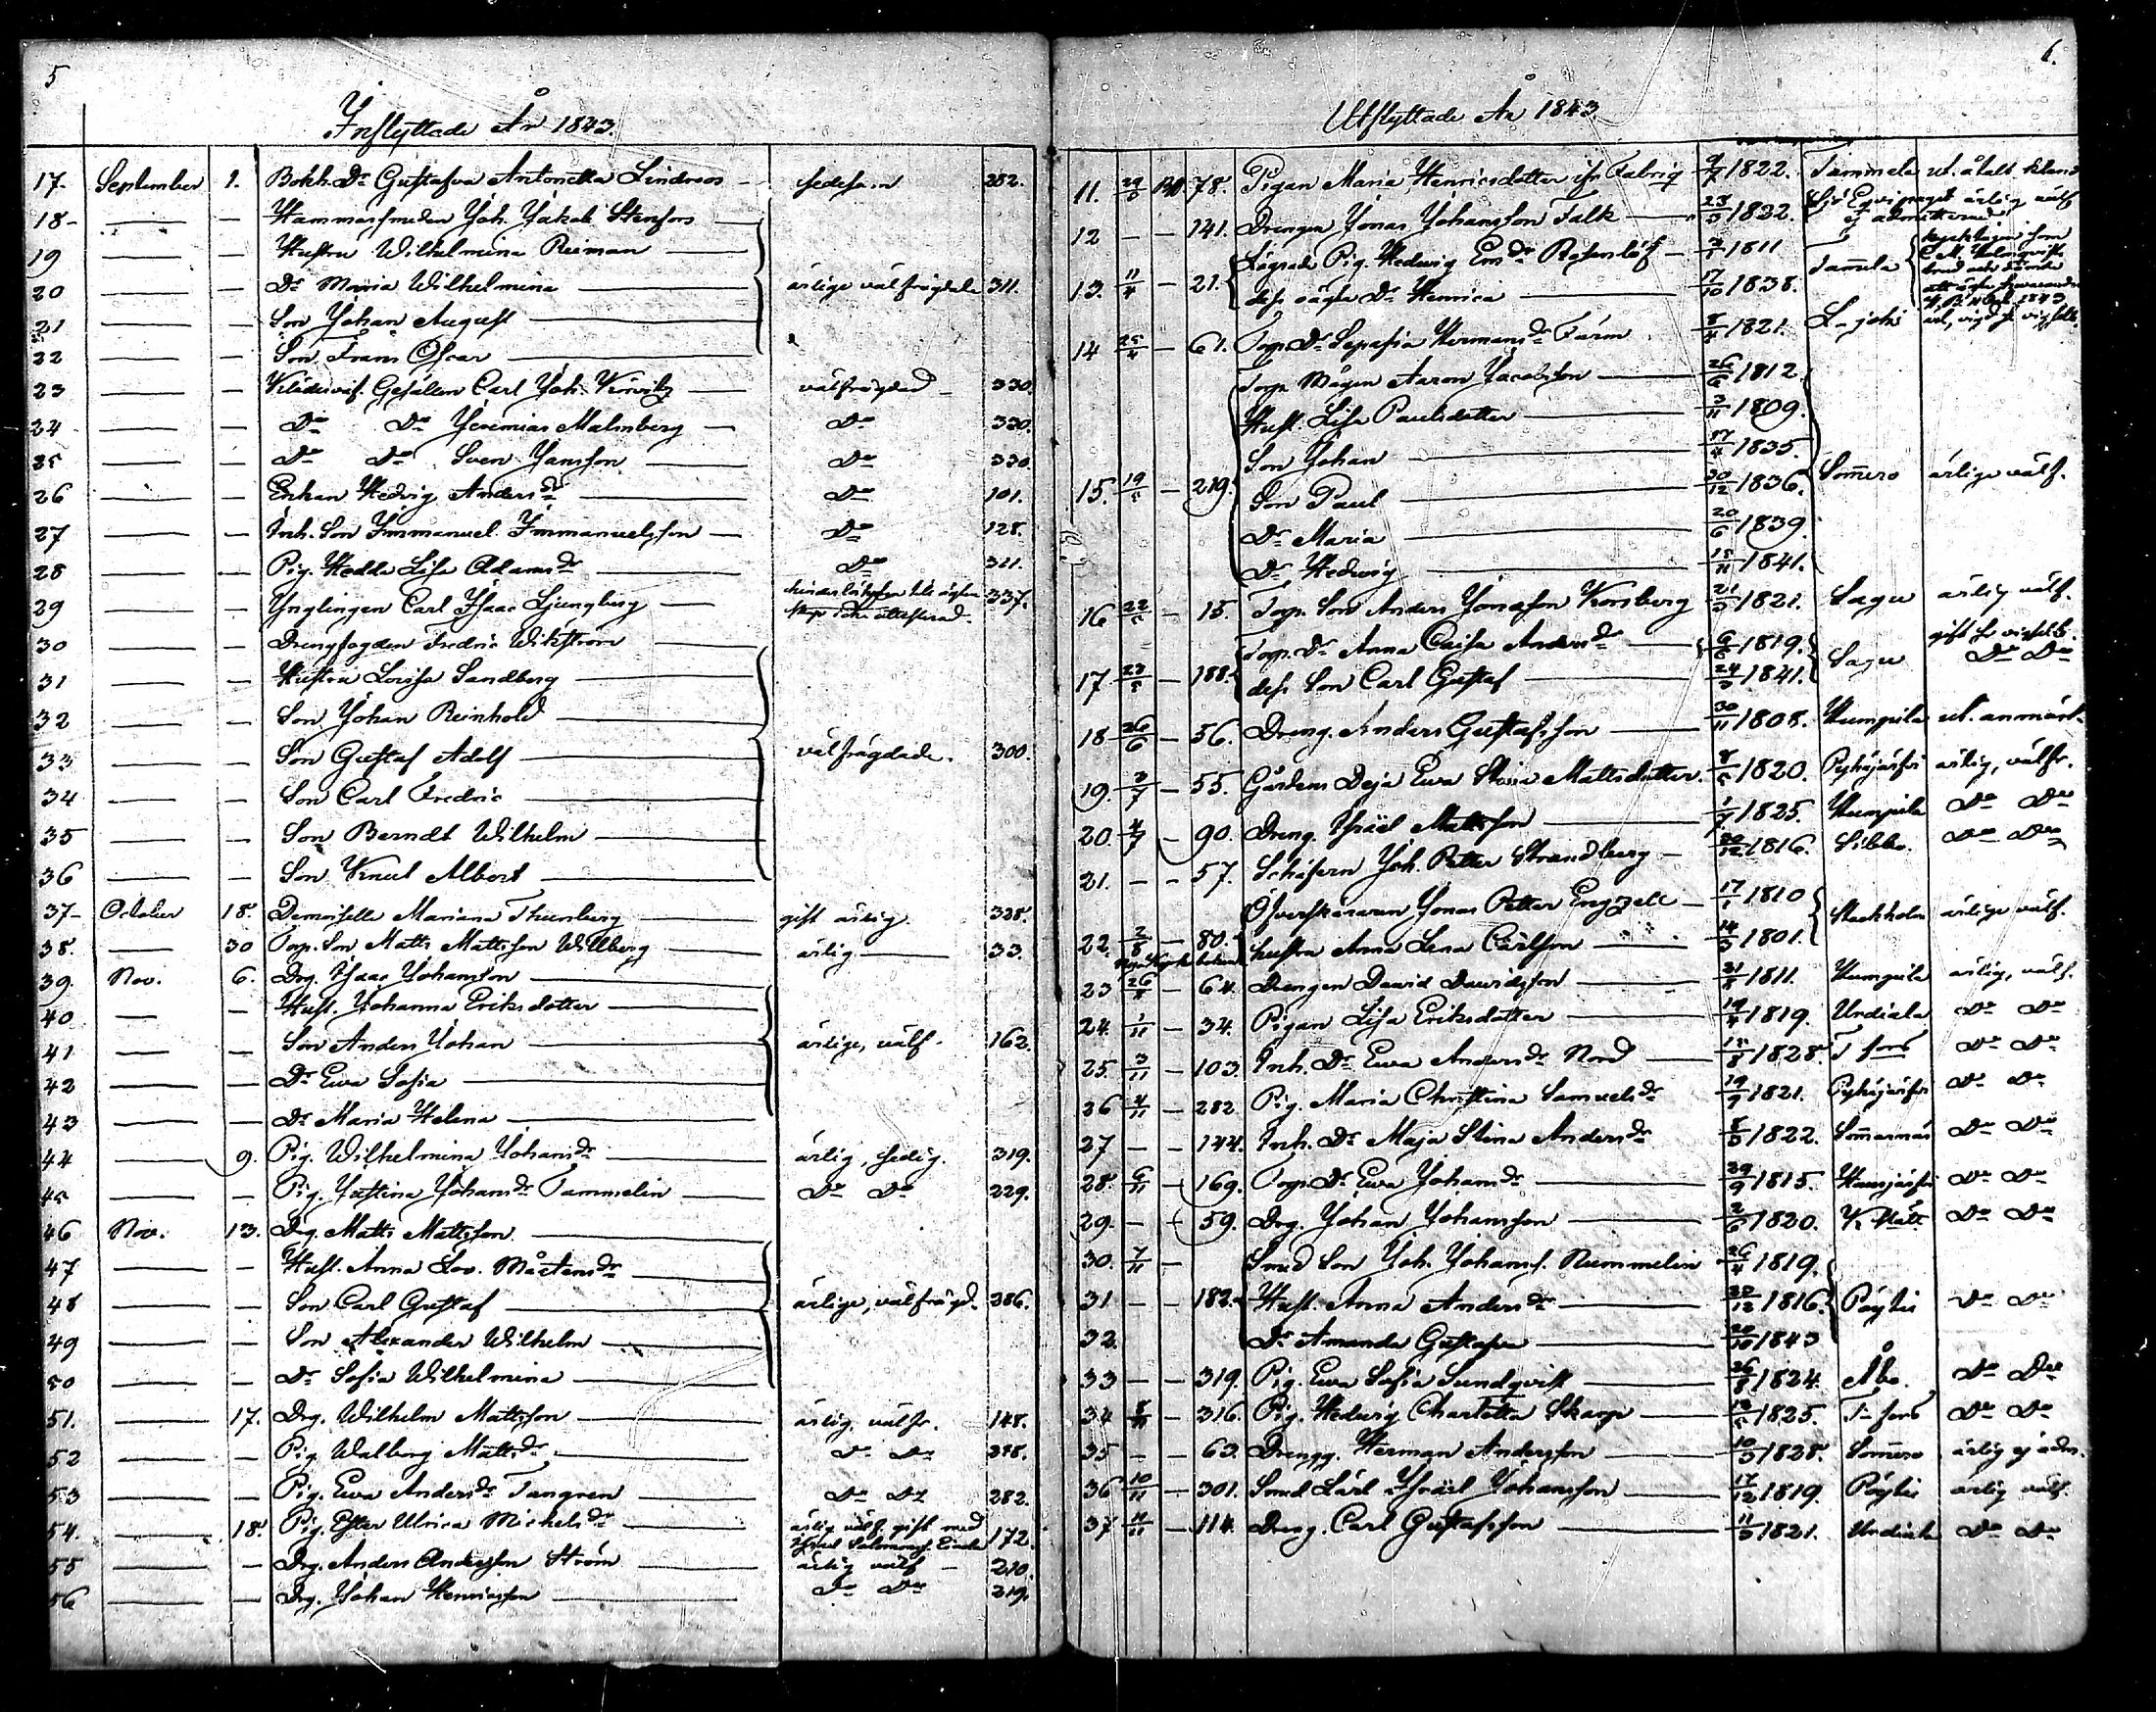 5
Inflyttade År 1843.
17. September 1. Bokh. Dr Gustafva Antonetta Lindroos sedesam 282.
18 — — Hammarsmeden Joh. Jakob Stenfors
19 — — Hustru Wilhelmina Reiman
20 — — Dr Maria Wilhelmina ärlige välfrägdade 311.
21 — — Son Johan August
22 — — Son Frans Oscar
23 — — Klädesväf. Gesällen Carl Joh. välfrägdad 330.
24 — — Do Do Jeremias Malmberg Do 330.
25 — — Do Do Sven Jansson Do 330.
26 — — Enkan Hedvig Andersdr Do 101.
27 — — Inh. Son Immanuel Immanuelsson Do 128.
28 — — Pig. Hedda Lisa Adamsdr Do 321.
29 — — Ynglingen Carl Isaac Ljungberg 337.
30 — — Drengfogden Fredric Wikström
31 — — Hustru Lovisa Sandberg
32 — — Son Johan Reinhold
33 — — Son Gustaf Adolf välfrägdade. 300.
34 — — Son Carl Fredric
35 — — Son Berndt Wilhelm
36 — — Son Knut Albert
37 October 18. Demoiselle Mariana Thunberg gift ärlig. 328.
38. — 30 Torp. Son Matts Mattsson Willberg ärlig 33.
39. Nov. 6. Drg. Isaac Johansson
40 — — Hust. Johanna Eriksdotter
41 — — Son Anders Johan ärlige, välf. 162.
42 — — Dr Eva Sofia
43 — — Dr Maria Helena
44 — 9. Pig. Wilhelmina Johansdr ärlig, sedig. 319.
45 — — Pig. Justina Johansdr Tammelin Do Do 229.
46 Nov. 13. Drg. Matts Mattsson
47 — — Hust. Anna Lov. Mårtensdr
48 — — Son Carl Gustaf ärlige, välfrägd. 286.
49 — — Son Alexander Wilhelm
50 — — Dr Sofia Wilhelmina
51. — 17. Drg. Wilhelm Mattsson ärlig. välfr. 148.
52 — — Pig. Walborg Mattsdr Do Do 278.
53 — — Pig. Eva Andersdr Tangren Do Do 282.
54. — 18. Pig. Ester Ulrica Mickelsdr ärlig välf. gift med 172.
55 — Drg. Anders Andersson Ström ärlig välf 210.
56 — Drg. Johan Henricsson Do Do 219.
6.
Utflyttade År 1843
11. 78. Pigan Maria Henricsdotter 1822. Tammela
12 — — 141. Drengen Jonas Johansson Falk 23/3 1822. ärlig välf
13. 11/4 — 21. Lägrade Pig. Hedwig Emdr 1811 Tammela
dess oägta Dr Henrica 17/10 1838.
14 25/4 — 61. Torp. Dr Hermansdr Färm 8/4 1821. L-joki
Torp. Mågen Aaron Jacobsson 26/6 1812
Hust. Lisa Paulsdotter 3/11 1809.
Son Johan 1835.
15. 19/5 — 219. Son Paul 30/12 1836. Somero ärlige välf.
Dr Maria 20/6 1839.
Dr Hedwig 1841.
16 22/5 — 15. Torp. Son Anders Jonasson Korsberg 21/3 1821. Sagu ärlig välf.
17 23/5 — 188. Torp. Dr Anna Caisa Andersdr 1819. Sagu
dess Son Carl Gustaf 24/3 1841. Do Do
18 26/6 — 56. Dreng. Anders Gustafsson 30/11 1808. Humpila
19. 3/7 — 55. Gårdens Deja Ewa Stina Mattsdotter 1820. Pyhäjärfvi ärlig, välfr.
20. 4/7 — 90. Dreng. Israel Mattsson 1825. Humpila Do Do
21. — — 57. Schäfern Joh. Petter Strandberg 1816. Sibbo. Do Do
Öfverskäraren Jonas Petter Engzell 17/1 1810
22. 2/8 — 80. hustru Anna Lena Carlsson 14/3 1801. Stockholm ärlige välf.
23 26/8 — 64. Drengen David Davidsson 1811. Humpila ärlig, välf.
24. 1/11 — 34. Pigan Lisa Eriksdotter 19/4 1819. Urdiala Do Do
25 3/11 — 103. Inh. Dr Eva Andersdr Nord 1828. T-fors Do Do
26 4/11 — 282 Pig. Maria Christina Samuelsdr 19/9 1821. Pyhäjärfvi Do Do
27 — — 144. Inh. Dr Maja Stina Andersdr 1822. Somernäs Do Do
28. 6/11 — 169. Torp. Dr Eva Johansdr 29/9 1815. Do Do
29. — — 59. Drg. Johan Johansson 2/6 1820. Do Do
30. 7/11 — Smed Son Joh. Johanss. Nummelin 26/4 1819.
31 — — 182. Hust. Anna Andersdr 1816. Pöytis Do Do
32. Dr Amanda Gustafva 1843
33 — — 319. Pig. Eva Sofia Sundqvist 26/8 1824. Åbo. Do Do
34 8/11 — 316. Pig. Hedvig Charlotta Skarp 1825. T-fors Do Do
35 — — 63. Drengg. Herman Andersson 10/3 1828. Somero ärlig ej adm.
36 10/11 — 301. Smed Lärl. Israel Johansson 17/12 1819. Pöytis ärlig välf.
37 11/11 — 114. Dreng. Carl Gustafsson 11/3 1821. Urdiala Do Do